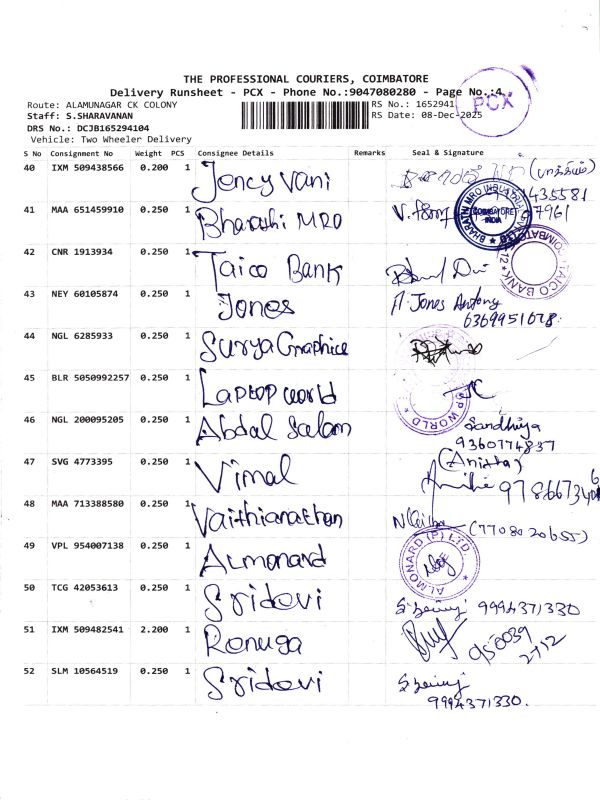 THE PROFESSIONAL COURIERS, COIMBATORE
Delivery Runsheet - PCX - Phone No.:9047080280 - Page No.:4
Route: ALAMUNAGAR CK COLONY RS No.: 1652941
Staff: S.SHARAVANAN RS Date: 08-Dec-2025
PCX
DRS No.: DCJB165294104
Vehicle: Two Wheeler Delivery
S No Consignment No Weight PCS Consignee Details Remarks Seal & Signature
40 IXM 509438566 0.200 1 Jency Vani
435581
41 MAA 651459910 0.250 1 Bharathi MRO
7961
COIMBATORE INDIA
42 CNR 1913934 0.250 1 Taico Bank
TAICO BANK
43 NEY 60105874 0.250 1 Jones A. Jones Antony
6369951678
44 NGL 6285933 0.250 1 Surya Graphice
45 BLR 5050992257 0.250 1 Laptop world
P WORLD
46 NGL 200095205 0.250 1 Abdal Salam Sandhiya
9360774837
47 SVG 4773395 0.250 1 Vimal (Anitta)
48 MAA 713388580 0.250 1 Vaithianathan (7708020655)
49 VPL 954007138 0.250 1 Almonard
ALMONARD (P) LTD.
50 TCG 42053613 0.250 1 Sridevi 9994371330
51 IXM 509482541 2.200 1 Renuga 950039
2712
52 SLM 10564519 0.250 1 Sridevi
9994371330.